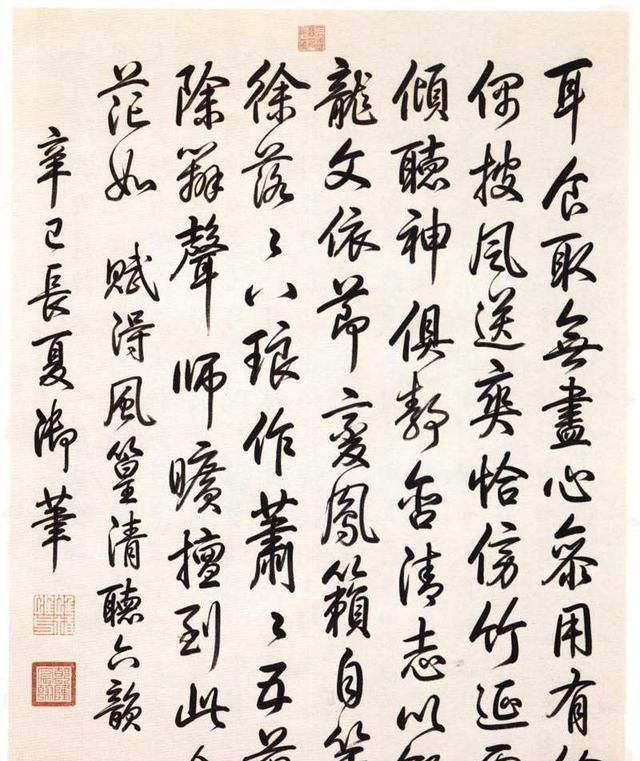 耳食取無盡心齋用有
偶披風送爽恰傍竹延
傾聽神俱静含清志以
龍文依節변鳳籟自
徐落〻八琅作蕭〻五
除籜聲師曠擅到此
茫如賦得風篁清聽六韻
辛巳長夏御筆